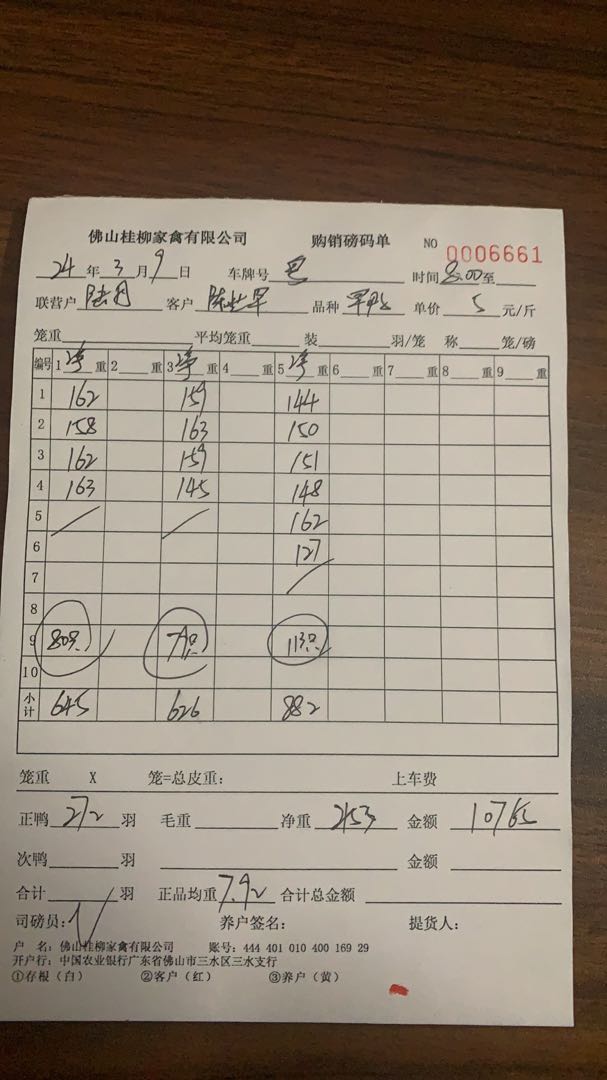 佛山桂柳家禽有限公司 购销磅码单 NO 0006661
24 年 3 月 9 日 车牌号 时间 8:00 至
联营户 客户 品种 单价 5 元/斤
笼重 平均笼重 装 羽/笼 称 笼/磅
编号 1 净 重 2 重 3 净 重 4 重 5 净 重 6 重 7 重 8 重 9 重
1 162 159 144
2 158 163 150
3 162 159 151
4 163 145 148
5 162
6 127
7
8
9 80只 79只 113只
10
小计 645 626 882
笼重 X 笼=总皮重: 上车费
正鸭 272 羽 毛重 净重 2153 金额 10765
次鸭 羽 金额
合计 羽 正品均重 7.92 合计总金额
司磅员: 养户签名: 提货人:
户 名: 佛山桂柳家禽有限公司 账号: 444 401 010 400 169 29
开户行: 中国农业银行广东省佛山市三水区三水支行
①存根(白) ②客户(红) ③养户(黄)